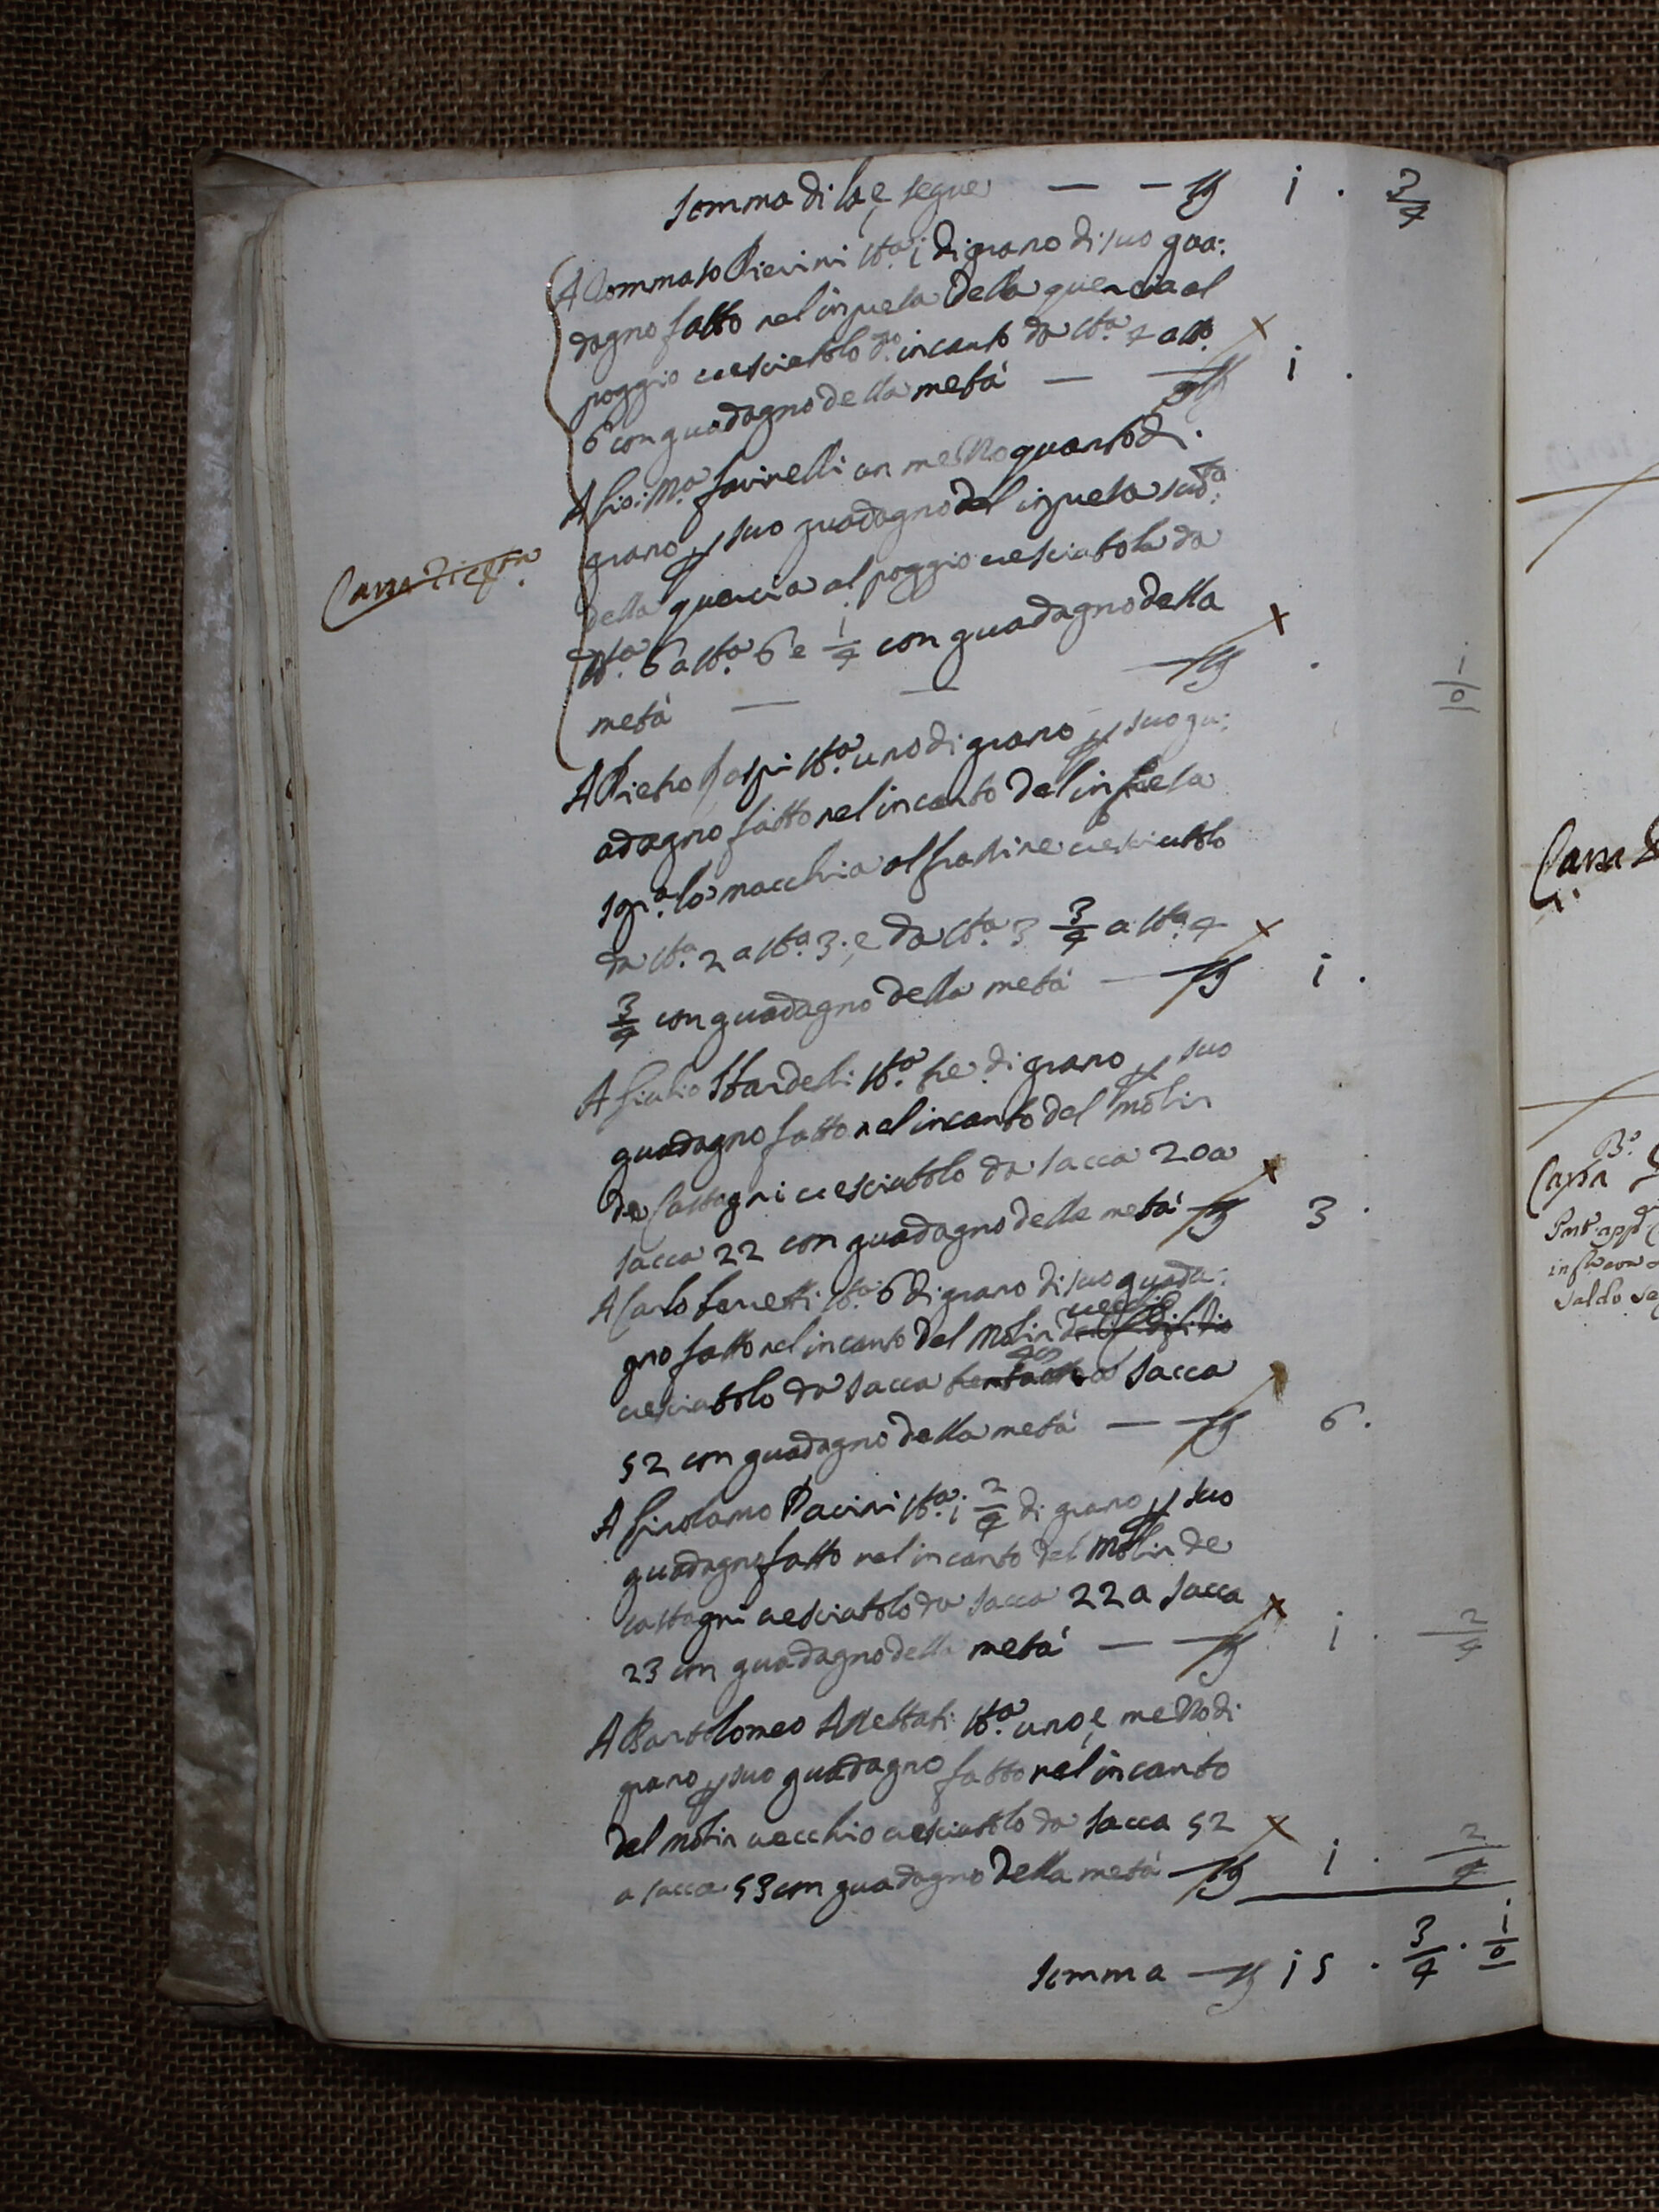 Somma di la, e segue — — i . 3/4
A Tommaso Pierini st.a i di grano di suo gua:
dagno fatto nel in presa della quercia al
poggio cresciutolo d.o incanto da st.a 4 a st.a
6 con guadagno della metà — — i .
A Gio: M.a Favinelli un mezzo quarto di
grano p suo guadagno del in presa sud.a
della quercia al poggio cresciutola da
st.a 6 a st.a 6 e 1/4 con guadagno della
metà — — — . i/0
A Pietro Gaspi st.a uno di grano p suo gu:
adagno fatto nel incanto del in presa
la macchia al frassine cresciutolo
da st.a 2 a st.a 3; e da st.a 3 3/4 a st.a 4
3/4 con guadagno della metà — i .
A Giulio Nardelli st.a tre di grano p suo
guadagno fatto nel incanto del molin
de Castagni cresciutolo da sacca 20 a
sacca 22 con guadagno della metà 3 .
A Carlo Ferretti st.a 6 di grano di suo guada:
gno fatto nel incanto del Molin vecchio
cresciutolo da sacca a sacca
52 con guadagno della metà — — 6 .
A Girolamo Pacini st.a i 2/4 di grano p suo
guadagno fatto nel incanto del Molin de
castagni cresciutolo da sacca 22 a sacca
23 con guadagno della metà — — i . 2/4
A Bartolomeo st.a uno, e mezzo di
grano p suo guadagno fatto nel incanto
del molin vecchio cresciutolo da sacca 52
a sacca 53 con guadagno della metà — i . 2/4
Somma — i5 . 3/4 . i/0